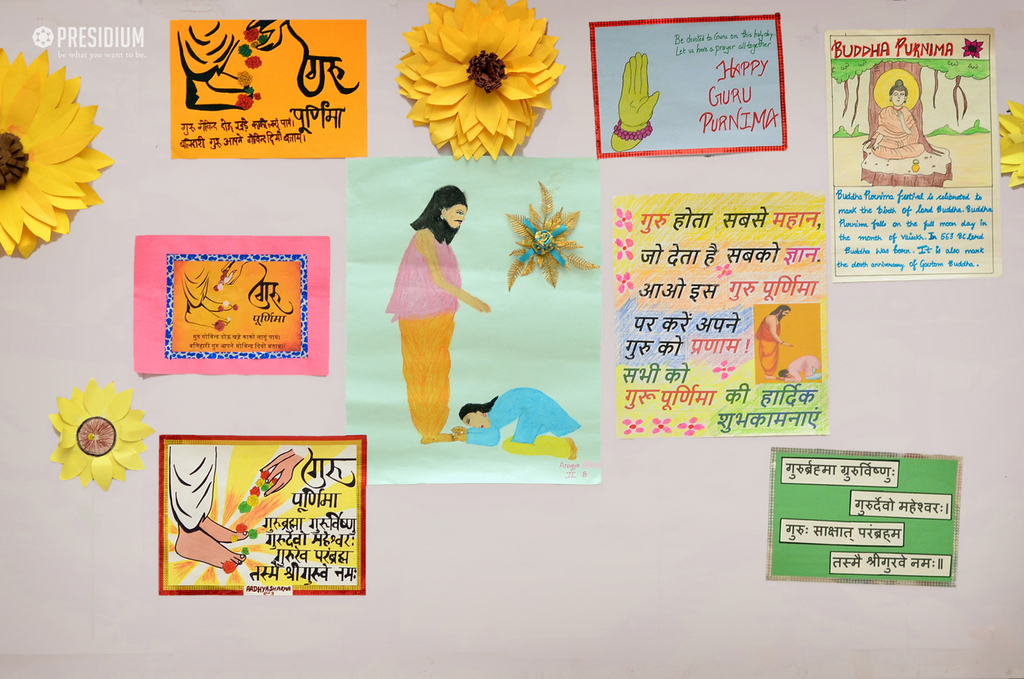 PRESIDIUM
be what you want to be.
गुरु
पूर्णिमा
गुरु गोविन्द दोऊ खड़े काको लागूं पाय।
बलिहारी गुरु आपने गोविन्द दियो बताय।
Be devoted to Guru on this holy day.
Let us have a prayer all together
HAPPY
GURU
PURNIMA
BUDDHA PURNIMA
Buddha Purnima festival is celebrated to
mark the birth of lord Buddha. Buddha
Purnima falls on the full moon day in
the month of Vaisakh. In 563 BC lord
Buddha was born. It is also mark
the death anniversary of Gautam Buddha.
गुरु
पूर्णिमा
गुरु गोविन्द दोऊ खड़े काको लागूं पाय।
बलिहारी गुरु आपने गोविन्द दियो बताय।
गुरु होता सबसे महान,
जो देता है सबको ज्ञान.
आओ इस गुरु पूर्णिमा
पर करें अपने
गुरु को प्रणाम !
सभी को
गुरू पूर्णिमा की हार्दिक
शुभकामनाएं
II B
गुरु
पूर्णिमा
गुरुब्रह्मा गुरुर्विष्णु
गुरुर्देवो महेश्वरः
गुरुरेव परंब्रह्म
तस्मै श्रीगुरुवे नमः
AARDHYA SHARMA
गुरुर्ब्रहमा ग्रुरुर्विष्णुः
गुरुर्देवो महेश्वरः।
गुरुः साक्षात् परंब्रह्म
तस्मै श्रीगुरवे नमः॥